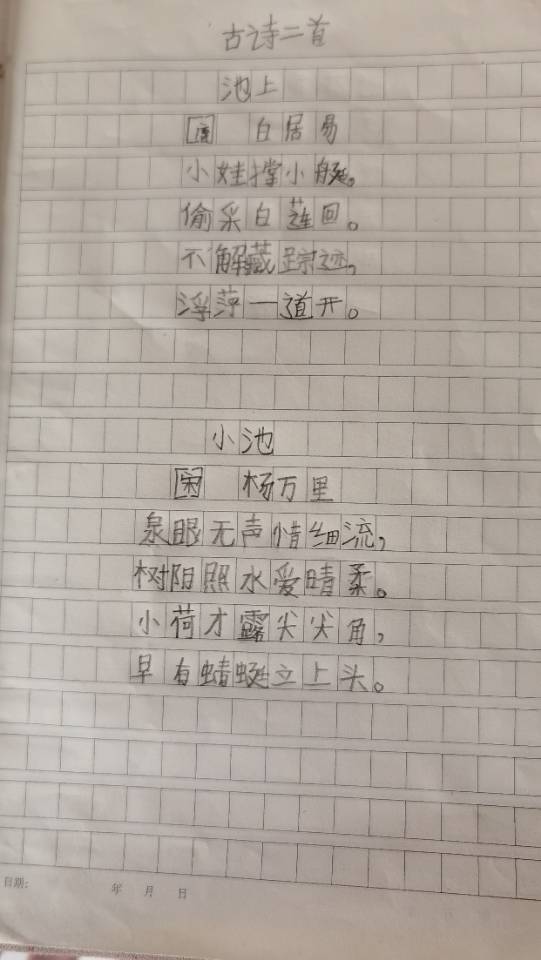 古诗二首
池上
[唐] 白居易
小娃撑小艇。
偷采白莲回。
不解藏踪迹,
浮萍一道开。
小池
[宋] 杨万里
泉眼无声惜细流,
树阳照水爱晴柔。
小荷才露尖尖角,
早有蜻蜓立上头。
日期: 年 月 日